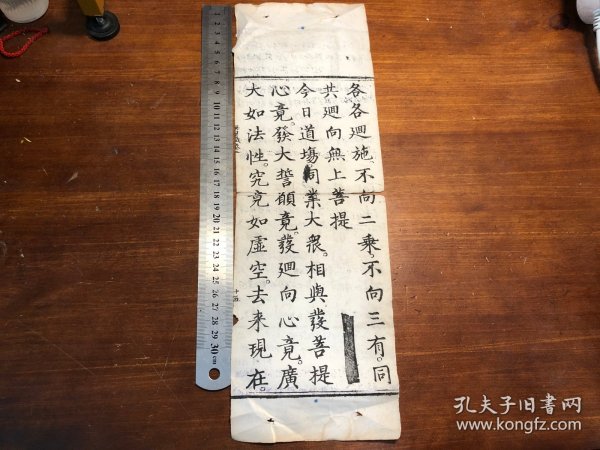 各各迴施、不向二乘、不向三有。同
共迴向無上菩提
今日道場同業大衆。相與發菩提
心竟。發大誓願竟。發迴向心竟。廣
大如法性。究竟如虛空。去来現在。
十四
孔夫子旧書网
www.kongfz.com